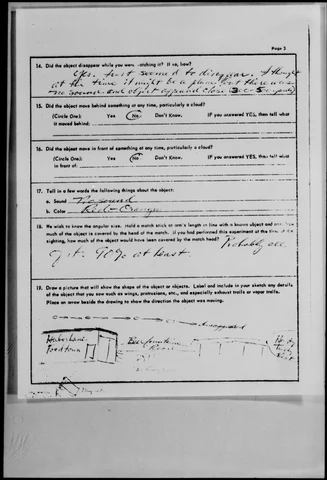 Page 3
14. Did the object disappear while you were watching it? If so, how?
Yes. Just seemed to disappear. I thought
at the time it might be a plane, but there was
no sound and object appeared close
15. Did the object move behind something at any time, particularly a cloud?
(Circle One): Yes No Don't Know. IF you answered YES, then tell what
it moved behind:
16. Did the object move in front of something at any time, particularly a cloud?
(Circle One): Yes No Don't Know. IF you answered YES, then tell what
in front of:
17. Tell in a few words the following things about the object:
a. Sound No sound
b. Color Red-Orange
18. We wish to know the angular size. Hold a match stick at arm's length in line with a known object and note how
much of the object is covered by the head of the match. If you had performed this experiment at the time of the
sighting, how much of the object would have been covered by the match head? Probably all
of it. 90% at least.
19. Draw a picture that will show the shape of the object or objects. Label and include in your sketch any details
of the object that you saw such as wings, protrusions, etc., and especially exhaust trails or vapor trails.
Place an arrow beside the drawing to show the direction the object was moving.
disappeared
Foodtown
Road